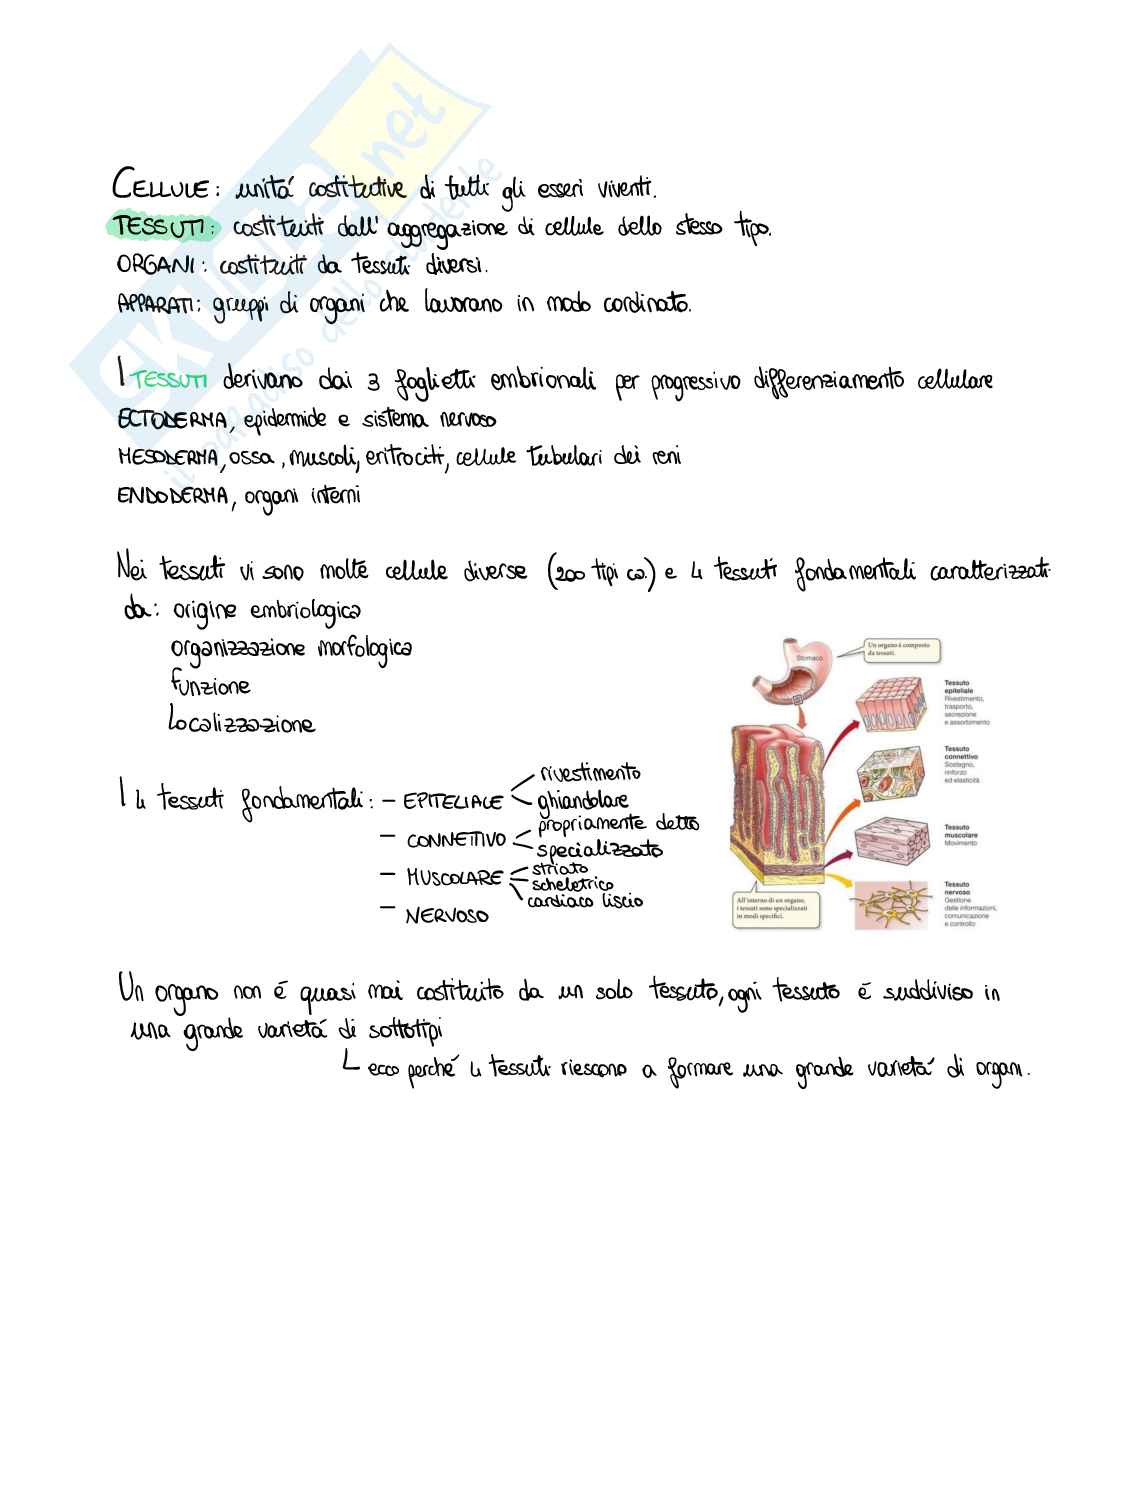 SKUOLA.net
il paradiso dello studente
CELLULE: unitá costitutive di tutti gli esseri viventi.
TESSUTI: costituiti dall'aggregazione di cellule dello stesso tipo.
ORGANI: costituiti da tessuti diversi.
APPARATI: gruppi di organi che lavorano in modo cordinato.
I TESSUTI derivano dai 3 foglietti embrionali per progressivo differenziamento cellulare
ECTODERMA, epidermide e sistema nervoso
MESODERMA, ossa, muscoli, eritrociti, cellule tubulari dei reni
ENDODERMA, organi interni
Nei tessuti vi sono molte cellule diverse (200 tipi ca.) e 4 tessuti fondamentali caratterizzati
da: origine embriologica
organizzazione morfologica
funzione
localizzazione
Stomaco
Un organo è composto
da tessuti.
Tessuto
epiteliale
Rivestimento,
trasporto,
secrezione
e assorbimento
Tessuto
connettivo
Sostegno,
rinforzo
ed elasticità
Tessuto
muscolare
Movimento
Tessuto
nervoso
Gestione
delle informazioni,
comunicazione
e controllo
All'interno di un organo,
i tessuti sono specializzati
in modi specifici.
I 4 tessuti fondamentali: - EPITELIALE
rivestimento
ghiandolare
- CONNETTIVO
propriamente detto
specializzato
- MUSCOLARE
striato
scheletrico
cardiaco liscio
- NERVOSO
Un organo non é quasi mai costituito da un solo tessuto, ogni tessuto é suddiviso in
una grande varietá di sottotipi
ecco perché 4 tessuti riescono a formare una grande varietá di organi.